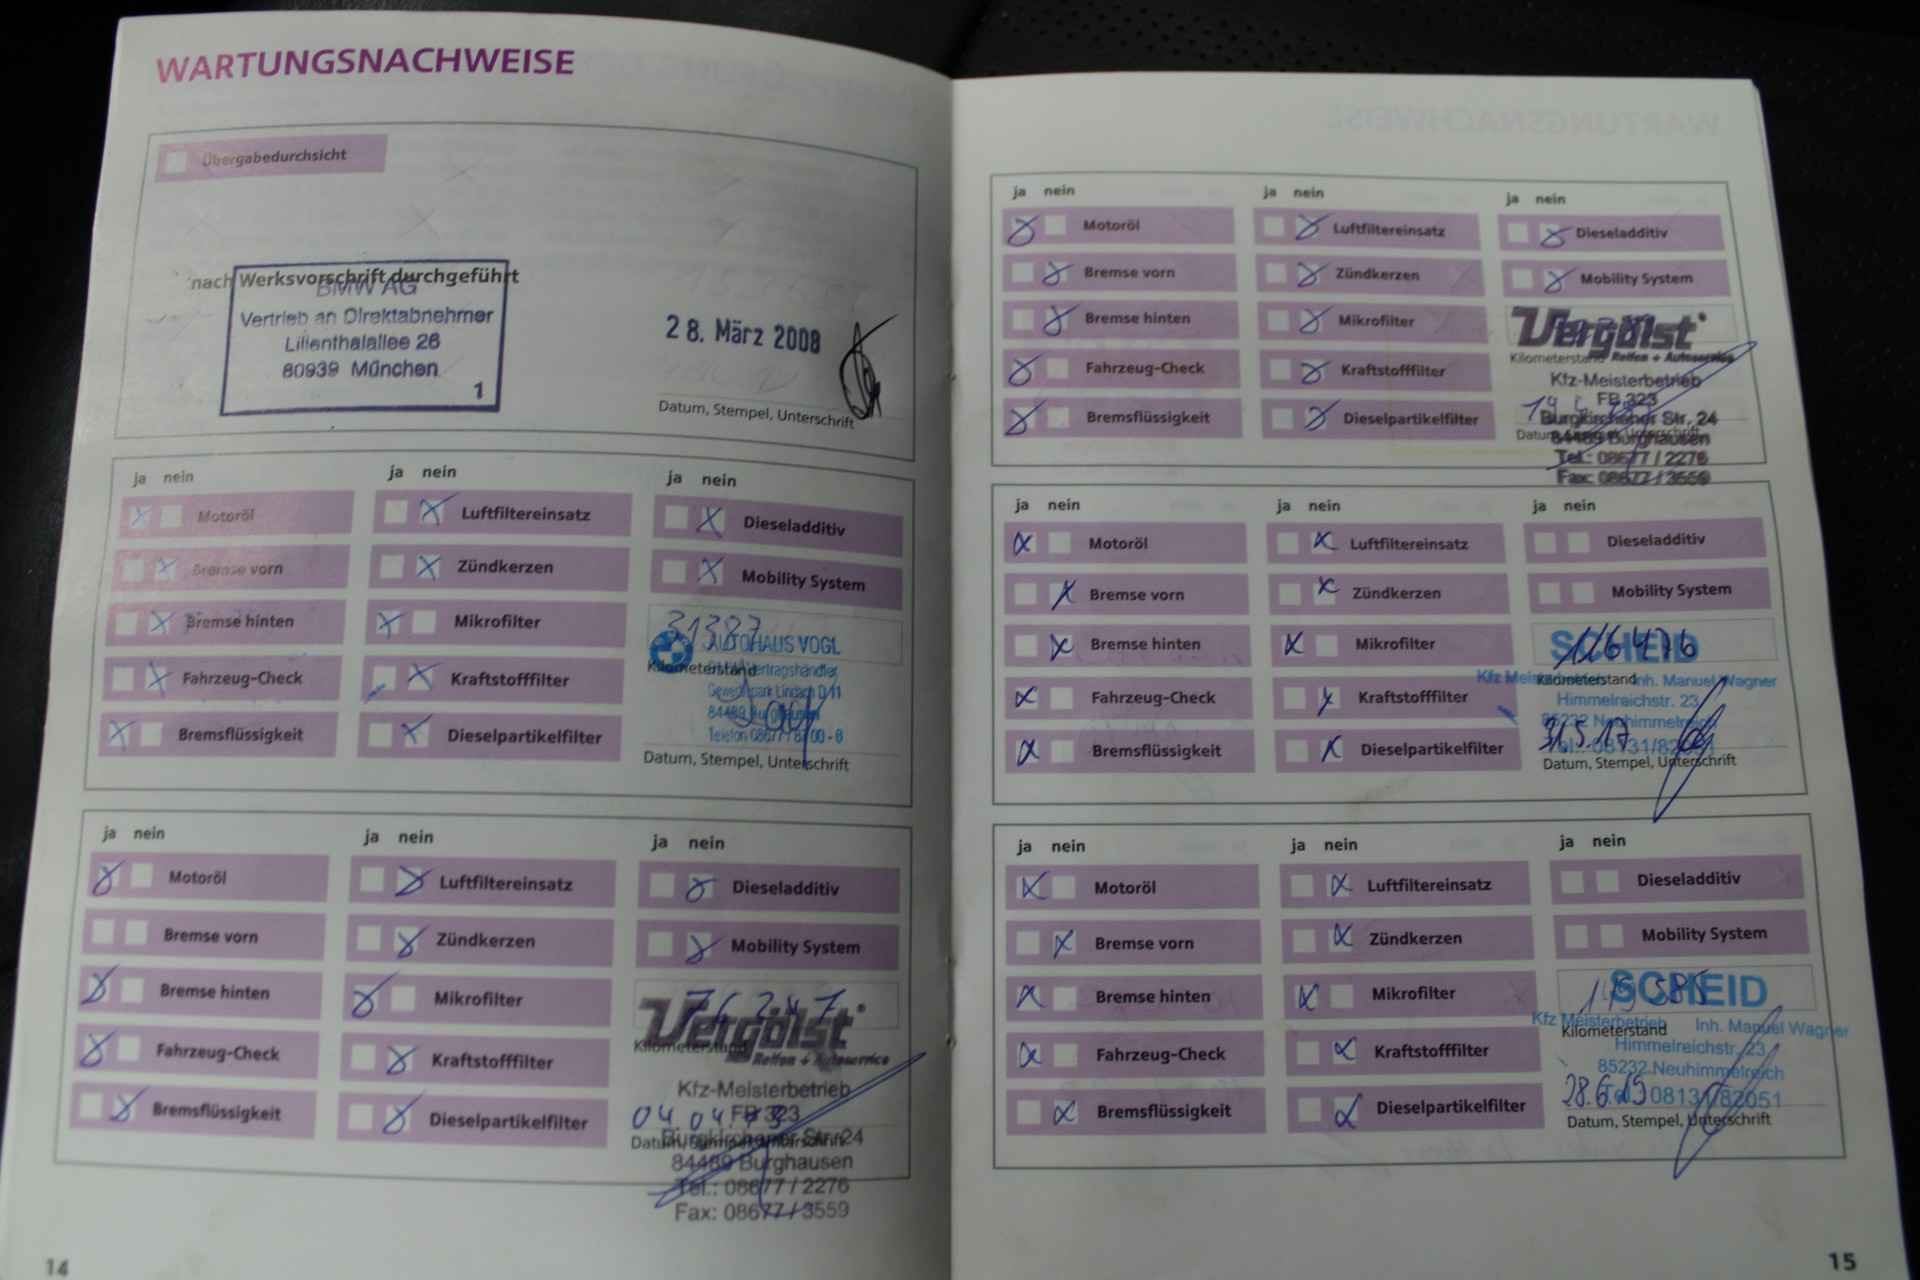 WARTUNGSNACHWEISE
Übergabedurchsicht
nach Werksvorschrift durchgeführt
BMW AG
Vertrieb an Direktabnehmer
Lilienthalallee 26
80939 München
1
28. März 2008
Datum, Stempel, Unterschrift
ja nein
ja nein
ja nein
Motoröl
Luftfiltereinsatz
Dieseladditiv
Bremse vorn
Zündkerzen
Mobility System
Bremse hinten
Mikrofilter
31387
AUTOHAUS VOGL
Kilometerstand
Fahrzeug-Check
Kraftstofffilter
84489 Burghausen
Bremsflüssigkeit
Dieselpartikelfilter
Datum, Stempel, Unterschrift
ja nein
ja nein
ja nein
Motoröl
Luftfiltereinsatz
Dieseladditiv
Bremse vorn
Zündkerzen
Mobility System
Bremse hinten
Mikrofilter
76247
Vergölst
Kilometerstand
Reifen + Autoservice
Fahrzeug-Check
Kraftstofffilter
Kfz-Meisterbetrieb
FB 323
04 04
Bremsflüssigkeit
Dieselpartikelfilter
Datum, Stempel, Unterschrift
Burgkirchener Str. 24
84489 Burghausen
Tel.: 08677 / 2276
Fax: 08677 / 3559
14
ja nein
ja nein
ja nein
Motoröl
Luftfiltereinsatz
Dieseladditiv
Bremse vorn
Zündkerzen
Mobility System
Bremse hinten
Mikrofilter
Vergölst
Kilometerstand
Reifen + Autoservice
Fahrzeug-Check
Kraftstofffilter
Kfz-Meisterbetrieb
FB 323
Bremsflüssigkeit
Dieselpartikelfilter
Burgkirchener Str. 24
84489 Burghausen
Tel.: 08677 / 2276
Fax: 08677 / 3559
ja nein
ja nein
ja nein
Motoröl
Luftfiltereinsatz
Dieseladditiv
Bremse vorn
Zündkerzen
Mobility System
Bremse hinten
Mikrofilter
SCHEID
116476
Kilometerstand
Inh. Manuel Wagner
Fahrzeug-Check
Kraftstofffilter
Himmelreichstr. 23
85232 Neuhimmelreich
31.5.17
Bremsflüssigkeit
Dieselpartikelfilter
Datum, Stempel, Unterschrift
ja nein
ja nein
ja nein
Motoröl
Luftfiltereinsatz
Dieseladditiv
Bremse vorn
Zündkerzen
Mobility System
Bremse hinten
Mikrofilter
SCHEID
Kfz Meisterbetrieb Inh. Manuel Wagner
Kilometerstand
Fahrzeug-Check
Kraftstofffilter
Himmelreichstr. 23
85232 Neuhimmelreich
28.6.19
08131/82051
Bremsflüssigkeit
Dieselpartikelfilter
Datum, Stempel, Unterschrift
15